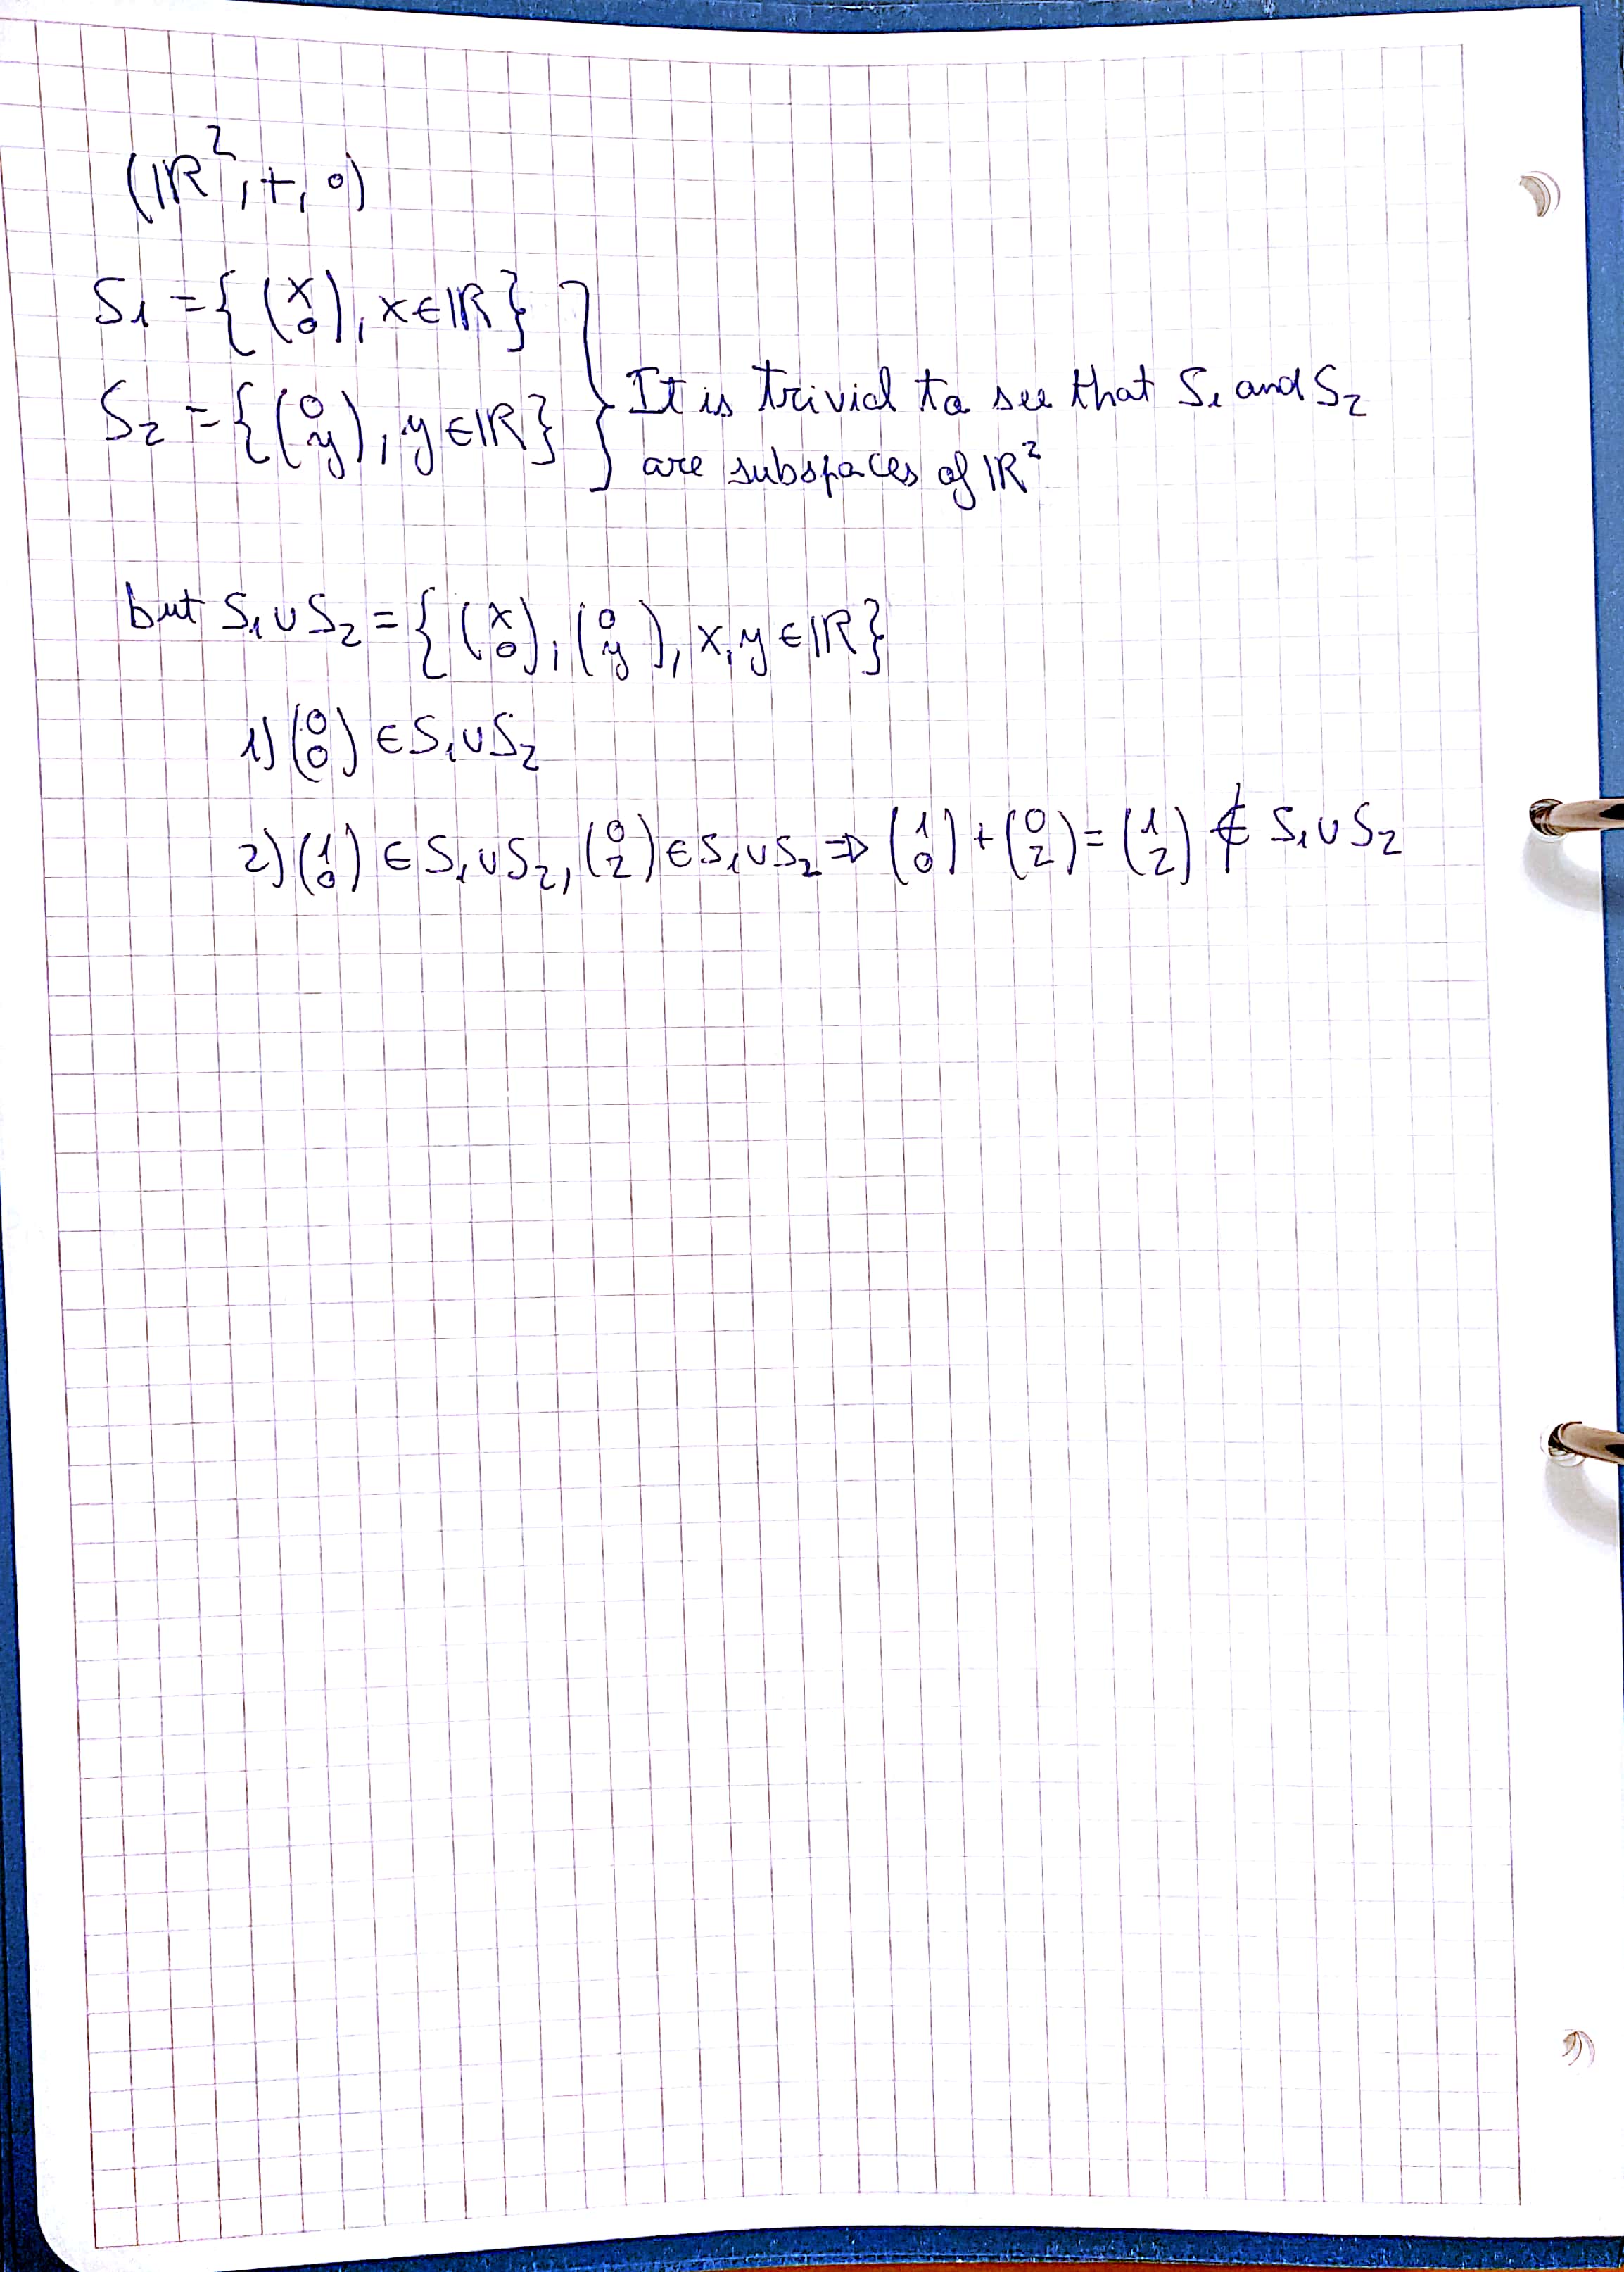 (ℝ², +, ∘)
S₁ = { (x 0), x ∈ ℝ }
S₂ = { (0 y), y ∈ ℝ }
It is trivial to see that S₁ and S₂
are subspaces of ℝ²
but S₁ ∪ S₂ = { (x 0), (0 y), x, y ∈ ℝ }
1) (0 0) ∈ S₁ ∪ S₂
2) (1 0) ∈ S₁ ∪ S₂, (0 2) ∈ S₁ ∪ S₂ ⇒ (1 0) + (0 2) = (1 2) ∉ S₁ ∪ S₂